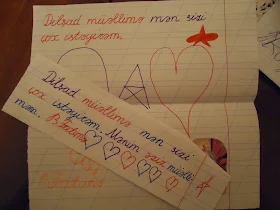 Dilşad müəllimə mən sizi
çox istəyirəm.
Dilşad müəllimə mən sizi
çox istəyirəm. Mənim əziz müəlli-
məm.